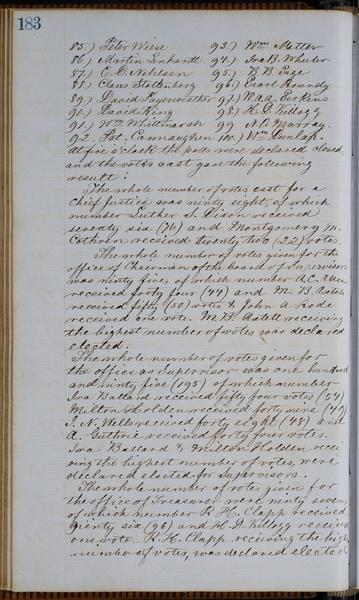 183
85.) Peter Wiese 93.) Wm Metter
86.) Martin Lenhardt 94.) Ira B. Wheeler
87.) C. D. Nehlsen 95.) B B Page
88.) Claus Stoltenberg 96.) Pearl Roundy
89.) David Fayerweather 97.) W. A. L. Perkins
90.) David King 98.) H. D. Kellogg
91.) Wm Whittmarsh 99 W. C. Murray.
92. Pat. Cannaughen 100.) Wm Dunlap.
At five o'clock the polls were declared closed
and the votes cast gave the following
result:
The whole number of votes cast for a
Chief Justice was ninety eight, of which
number Luther S. Dixon received
seventy six (76) and Montgomery M.
Cothren received twenty two (22) vote.
The whole number of votes given for the
office of Chairman of the board of Supervisors
was ninety five, of which number A. C.
received forty four (44) and M. B.
received fifty (50) votes & John A Rode
received one vote. M. B. receiving
the highest number of votes was declared
elected.
The whole number of votes given for
the office as Supervisor was one hundred
and ninty five (195) of which number
Ira Ballard received fifty four votes (54)
Milton Holden received forty nine (49)
J. N. Wells received forty eight (48) and
A. Guthrie received forty four votes.
Ira Ballard & Milton Holden recei-
ving the highest number of votes, were
declared elected for Supervisors.
The whole number of votes given for
the office of Treasurer were ninty seven,
of which number R. H. Clapp received
ninty six (96) and H. D. Kellogg received
one vote. R. H. Clapp receiving the high
number of votes, was declared elected